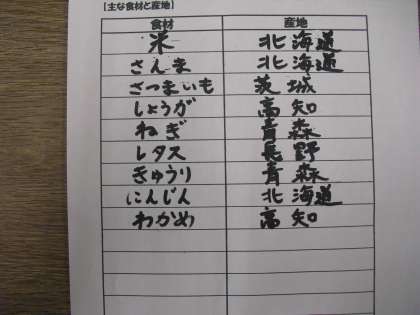 【主な食材と産地】
食材 産地
米 北海道
さんま 北海道
さつまいも 茨城
しょうが 高知
ねぎ 青森
レタス 長野
きゅうり 青森
にんじん 北海道
わかめ 高知